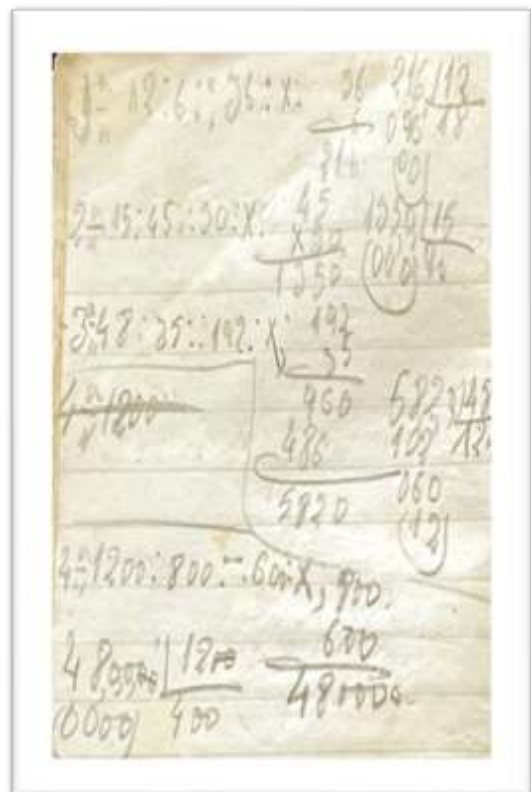 1ª 12:6::36:x: 36 216 |12
6 096 18
216 (00)
2ª 15:45::30:x: 45 1350 |15
x30 (000) 90
1350
3ª 48:35::192:x: 192
35
960 5820 |48
486 102 12
5820 060
(12)
4ª 1200
4ª 1200:800::600:x, 800.
600
480000 |1200 480000
(0000) 400